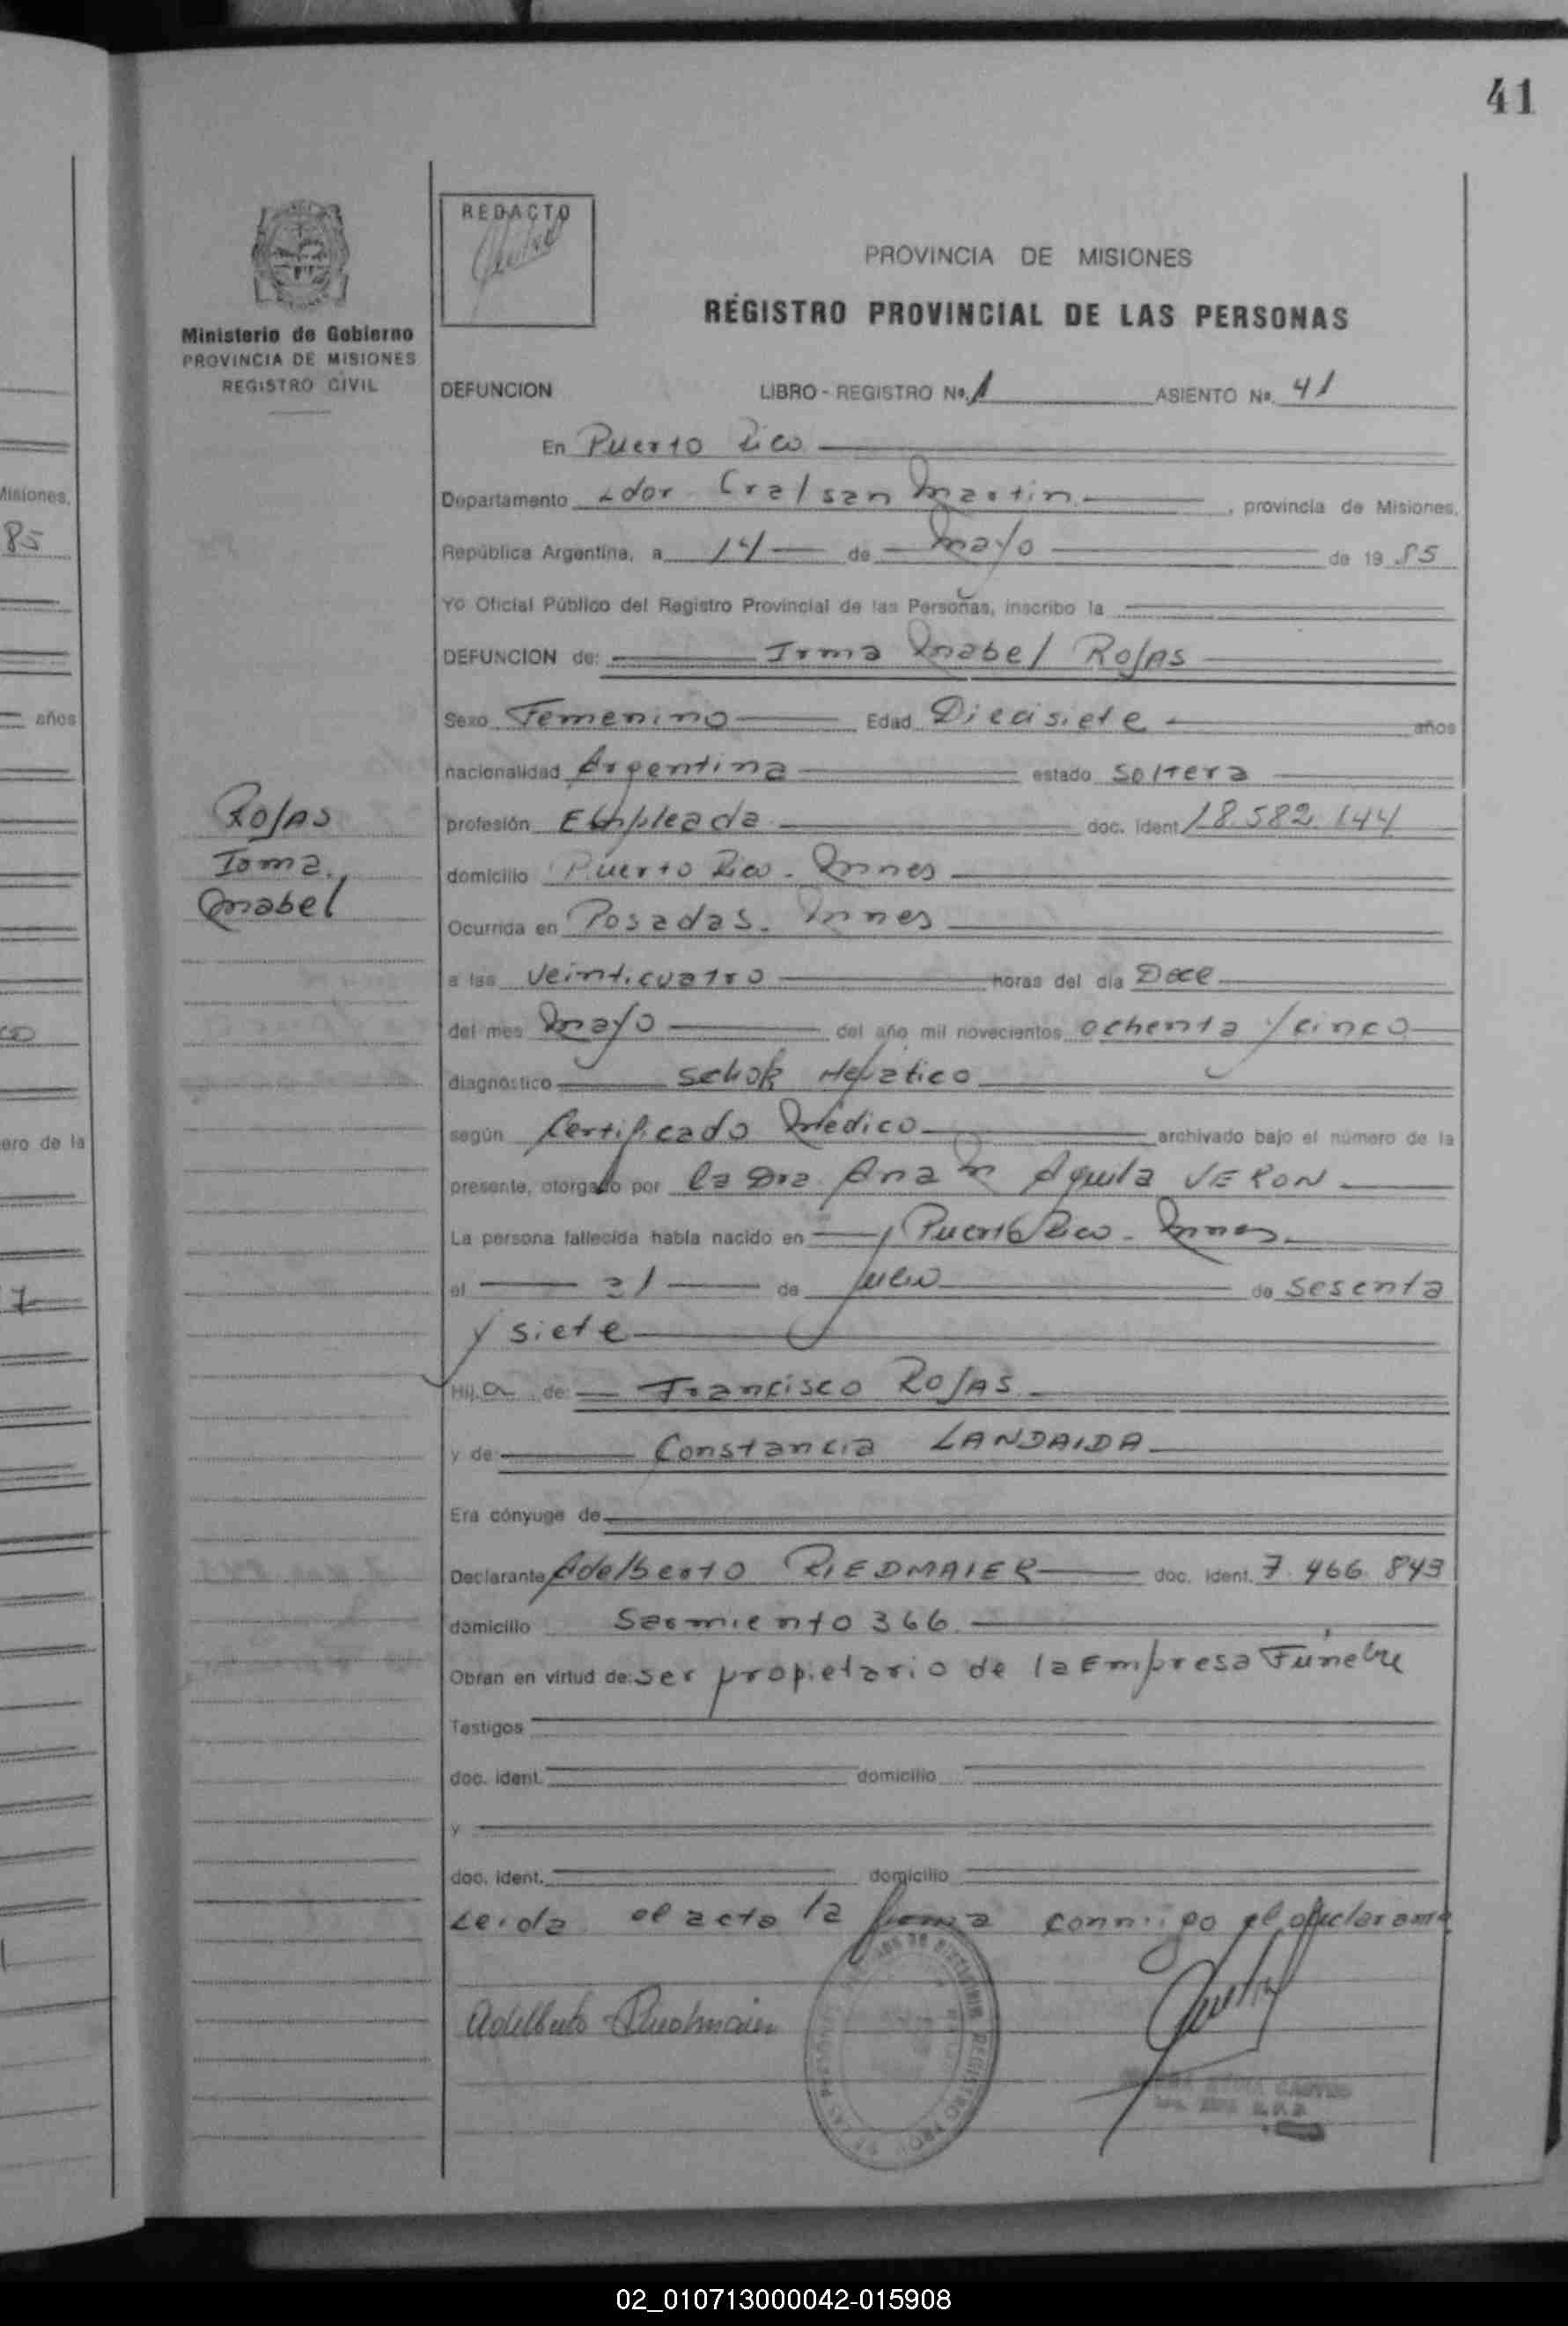 41
REDACTO
PROVINCIA DE MISIONES
REGISTRO PROVINCIAL DE LAS PERSONAS
Ministerio de Gobierno
PROVINCIA DE MISIONES
REGISTRO CIVIL
DEFUNCION LIBRO - REGISTRO Nº. 1 ASIENTO Nº. 41
En Puerto Rico
Departamento Ldor Gral san Martin, provincia de Misiones,
República Argentina, a 14 de mayo de 1985
Yo Oficial Público del Registro Provincial de las Personas, inscribo la
DEFUNCION de: Irma Mabel Rojas
Sexo Femenino Edad Diecisiete años
nacionalidad Argentina estado soltera
profesión Empleada doc. ident 18.582.144
domicilio Puerto Rico - Mnes
Ocurrida en Posadas. Mnes
a las veinticuatro horas del día Doce
del mes mayo del año mil novecientos ochenta y cinco
diagnóstico schok Hepatico
según Certificado Médico archivado bajo el número de la
presente, otorgado por la Dra Ana M Aguila VERON
La persona fallecida había nacido en Puerto Rico - Mnes
el 21 de julio de sesenta
y siete
Hij a de: Francisco ROJAS
y de Constancia LANDAIDA
Era cónyuge de
Declarante Adelberto RIEDMAIER doc. ident. 7.466.843
domicilio Sarmiento 366
Obran en virtud de: ser propietario de la Empresa Fúnebre
Testigos
doc. ident. domicilio
y
doc. ident. domicilio
Leida el acta la firma conmigo el declarante
Adelberto Riedmaier
Rojas
Irma
Mabel
Misiones,
85
años
ero de la
7
02_010713000042-015908